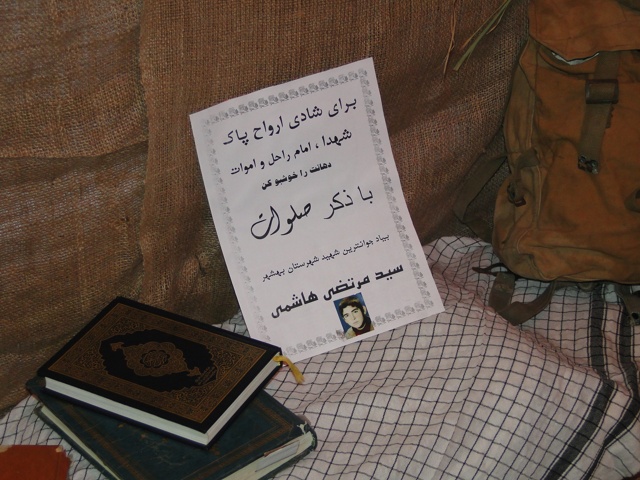 برای شادی ارواح پاک
شهدا ، امام راحل و اموات
دهانت را خوشبو کن
با ذکر صلوات
بیاد جوانترین شهید شهرستان بهشهر
سید مرتضی هاشمی